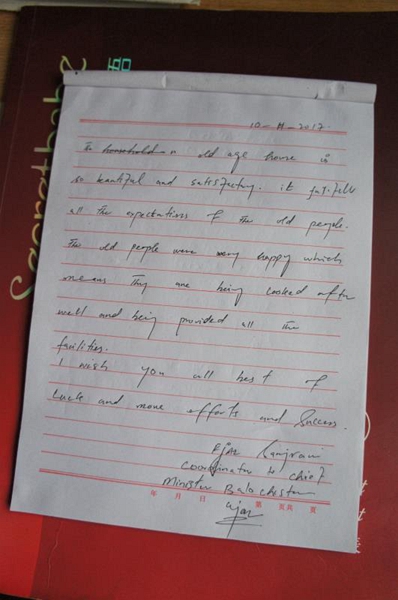 10-11-2017
The household n old age house is
so beautiful and satisfactory. it fulfills
all the expectations of the old people.
The old people were very happy which
means they are being looked after
well and being provided all the
facilities.
I wish you all best of
luck and more efforts and success.
Ejaz Sanjrani
Coordinator to Chief
Minister Balochistan
ejaz
年 月 日 第 页共 页